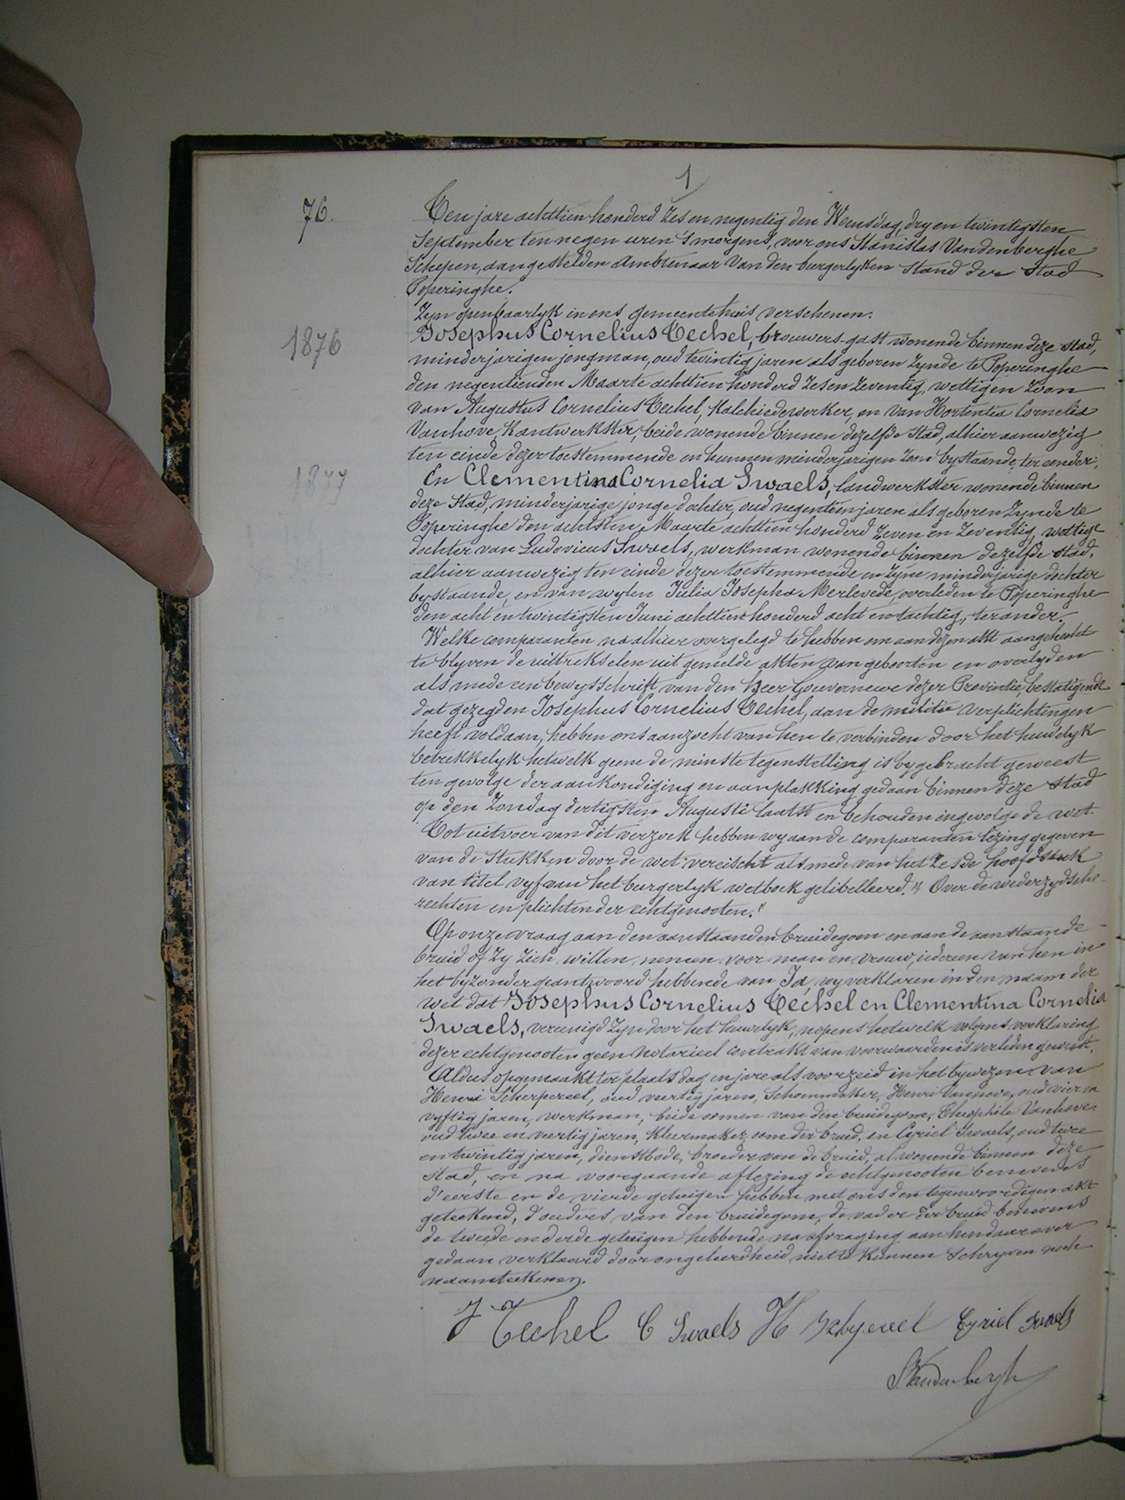 1
76.
Ten jare achttien honderd zes en negentig den Wensdag, dry en twintigsten
September ten negen uren 's morgens, voor ons Stanislas Vandenberghe
Schepen, aangestelden Ambtenaar van den burgerlyken Stand der Stad
Poperinghe.
Zyn openbaarlyk in ons gemeentehuis verschenen.
1876
Josephus Cornelius Techel, brouwers-gast wonende binnen deze stad,
minderjarigen jongman, oud twintig jaren als geboren zynde te Poperinghe
den negentienden Maarte achttien honderd zes en zeventig, wettigen zoon
van Augustus Cornelius Techel, Kalchiedewerker, en van Hortentia Cornelia
Vanhove, Kantwerkster, beide wonende binnen dezelfde Stad, alhier aanwezig
ten einde dezer toestemmende en hunnen minderjarigen zoon bystaande, ter eender;
1877
En Clementina Cornelia Swaels, landwerkster wonende binnen
deze Stad, minderjarige jonge dochter, oud negentien jaren als geboren zynde te
Poperinghe den achtsten Maarte achttien honderd zeven en zeventig, wettige
dochter van Ludovicus Swaels, werkman wonende binnen dezelfde stad,
alhier aanwezig ten einde dezer toestemmende en zyne minderjarige dochter
bystaande, en van wylen Julia Josepha Merlevede, overleden te Poperinghe
den acht en twintigsten Juni achttien honderd acht en tachtig, ter ander.
Welke comparanten na alhier overgelegd te hebben om aan dezen akt aangehecht
te blyven de uittrekselen uit gemelde akten van geboorten en overlyden
als mede een bewysschrift van den Heer Gouverneur dezer Provintie, bestatigende
dat gezegden Josephus Cornelius Techel, aan de militie verplichtingen
heeft voldaan, hebben ons aanzocht van hen te verbinden door het huwelyk
betrekkelyk hetwelk geene de minste tegenstelling is bygebracht geweest
ten gevolge der aankondiging en aanplakking gedaan binnen deze Stad
op den Zondag dertigsten Augusti laatst en behouden ingevolge de wet.
Tot uitvoer van dit verzoek hebben wy aan de comparanten lezing gegeven
van de Stukken door de wet vereischt alsmede van het zesde hoofdstuk
van titel vyf van het burgerlyk wetboek gelibelleerd: " Over de wederzydsche
rechten en plichten der echtgenooten."
Op onze vraag aan den aanstaanden bruidegom en aan de aanstaande
bruid of zy zich willen nemen voor man en vrouw, iederen van hen in
het byzonder geantwoord hebbende van Ja, wy verklaren in den naam der
wet dat Josephus Cornelius Techel en Clementina Cornelia
Swaels, vereenigd zyn door het huwelyk, nopens hetwelk volgens verklaring
dezer echtgenooten geen notarieel contrakt van voorwaarden is verleden geweest.
Aldus opgemaakt ter plaats dag en jare als voorzeid in het bywezen van
Henri Scherpereel, oud veertig jaren, Schoenmaker, Henri Vanhove, oud vier en
vyftig jaren, werkman, beide oomen van den bruidegom, Theophile Vanhove
oud twee en veertig jaren, Kleermaker, oom der bruid, en Cyriel Swaels, oud twee
en twintig jaren, dienstbode, broeder van de bruid, al wonende binnen deze
stad, en na voorgaande aflezing de echtgenooten benevens
d'eerste en de vierde getuigen hebben met ons den tegenwoordigen akt
geteekend, d'ouders van den bruidegom, de vader der bruid benevens
de tweede en derde getuigen hebbende na afvraging aan hen daarover
gedaan verklaard door ongeleerdheid niet te kunnen Schryven noch
naamteekenen.
J Techel C Swaels H Cyriel Swaels
S Vandenberghe